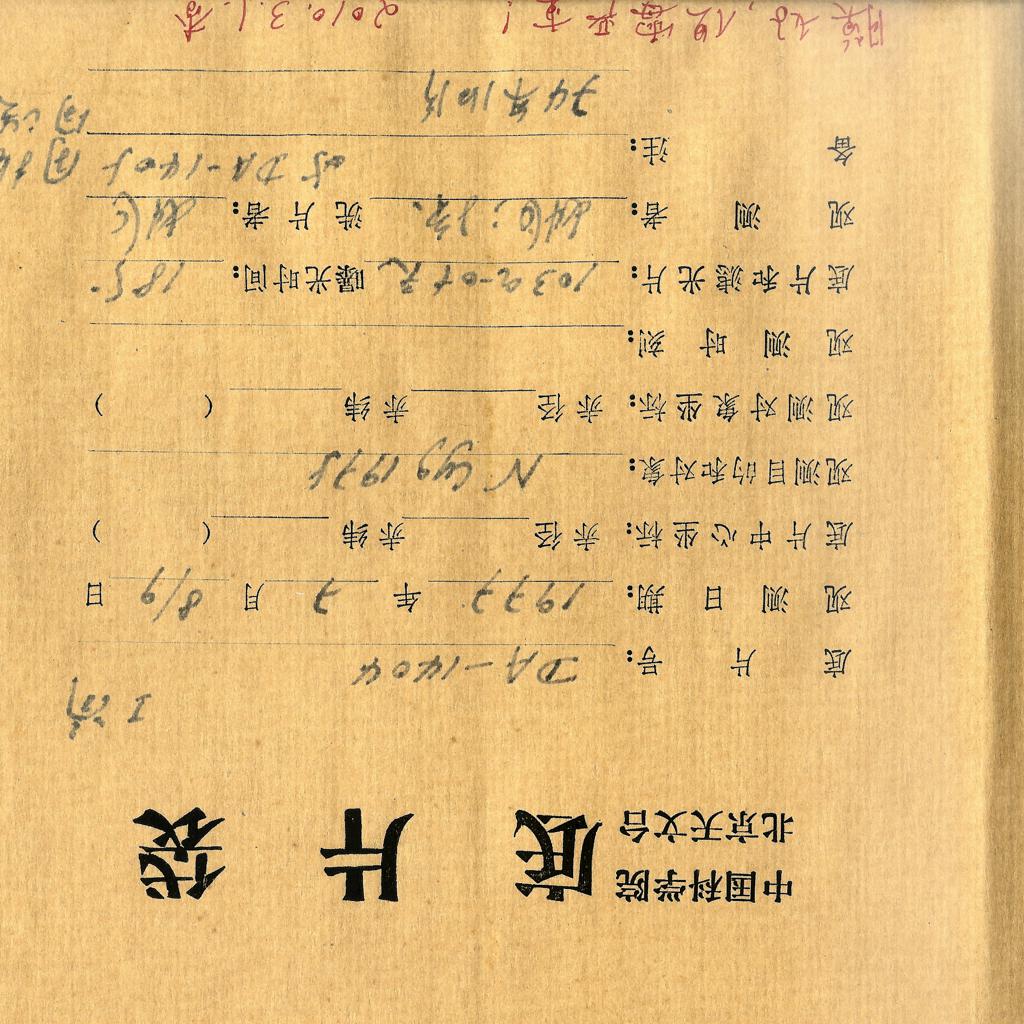 中国科学院
北京天文台
底片袋
底片号: DA-1404
观测日期: 1977 年 7 月 8/9 日
底片中心坐标: 赤径 赤纬 ( )
观测目的和对象: N Cyg 1975
观测对象坐标: 赤径 赤纬 ( )
观测时刻:
底片和滤光片: 103a-O+无 曝光时间:
观测者: 洗片者:
备注: 与DA-1405 同
74年10月
2010.3.1.